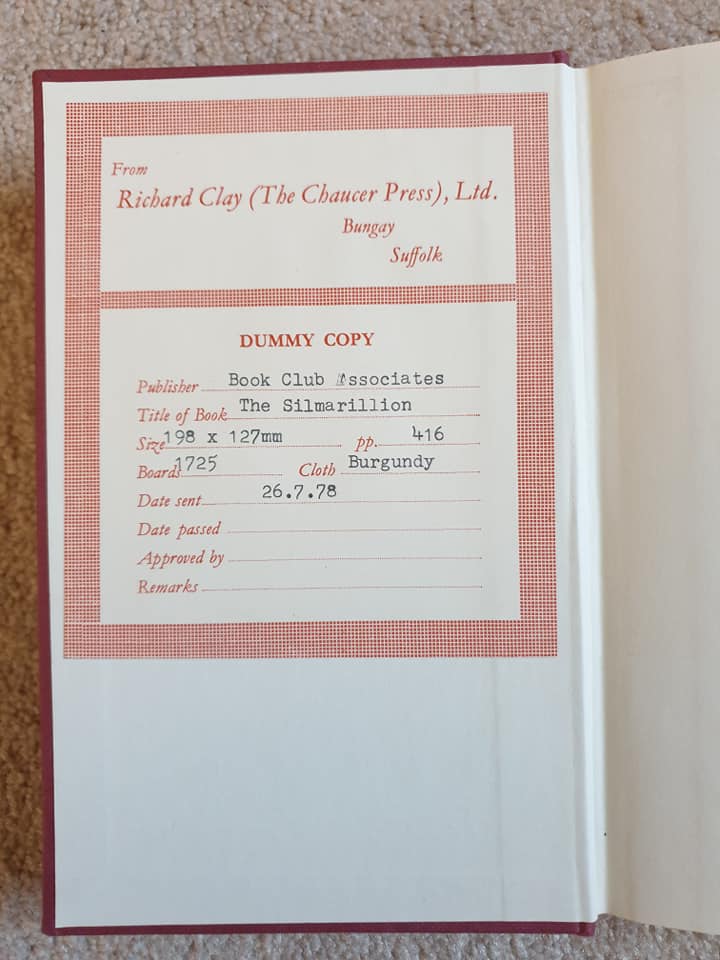 From
Richard Clay (The Chaucer Press), Ltd.
Bungay
Suffolk
DUMMY COPY
Publisher Book Club Associates
Title of Book The Silmarillion
Size 198 x 127mm pp. 416
Boards 1725 Cloth Burgundy
Date sent 26.7.78
Date passed
Approved by
Remarks